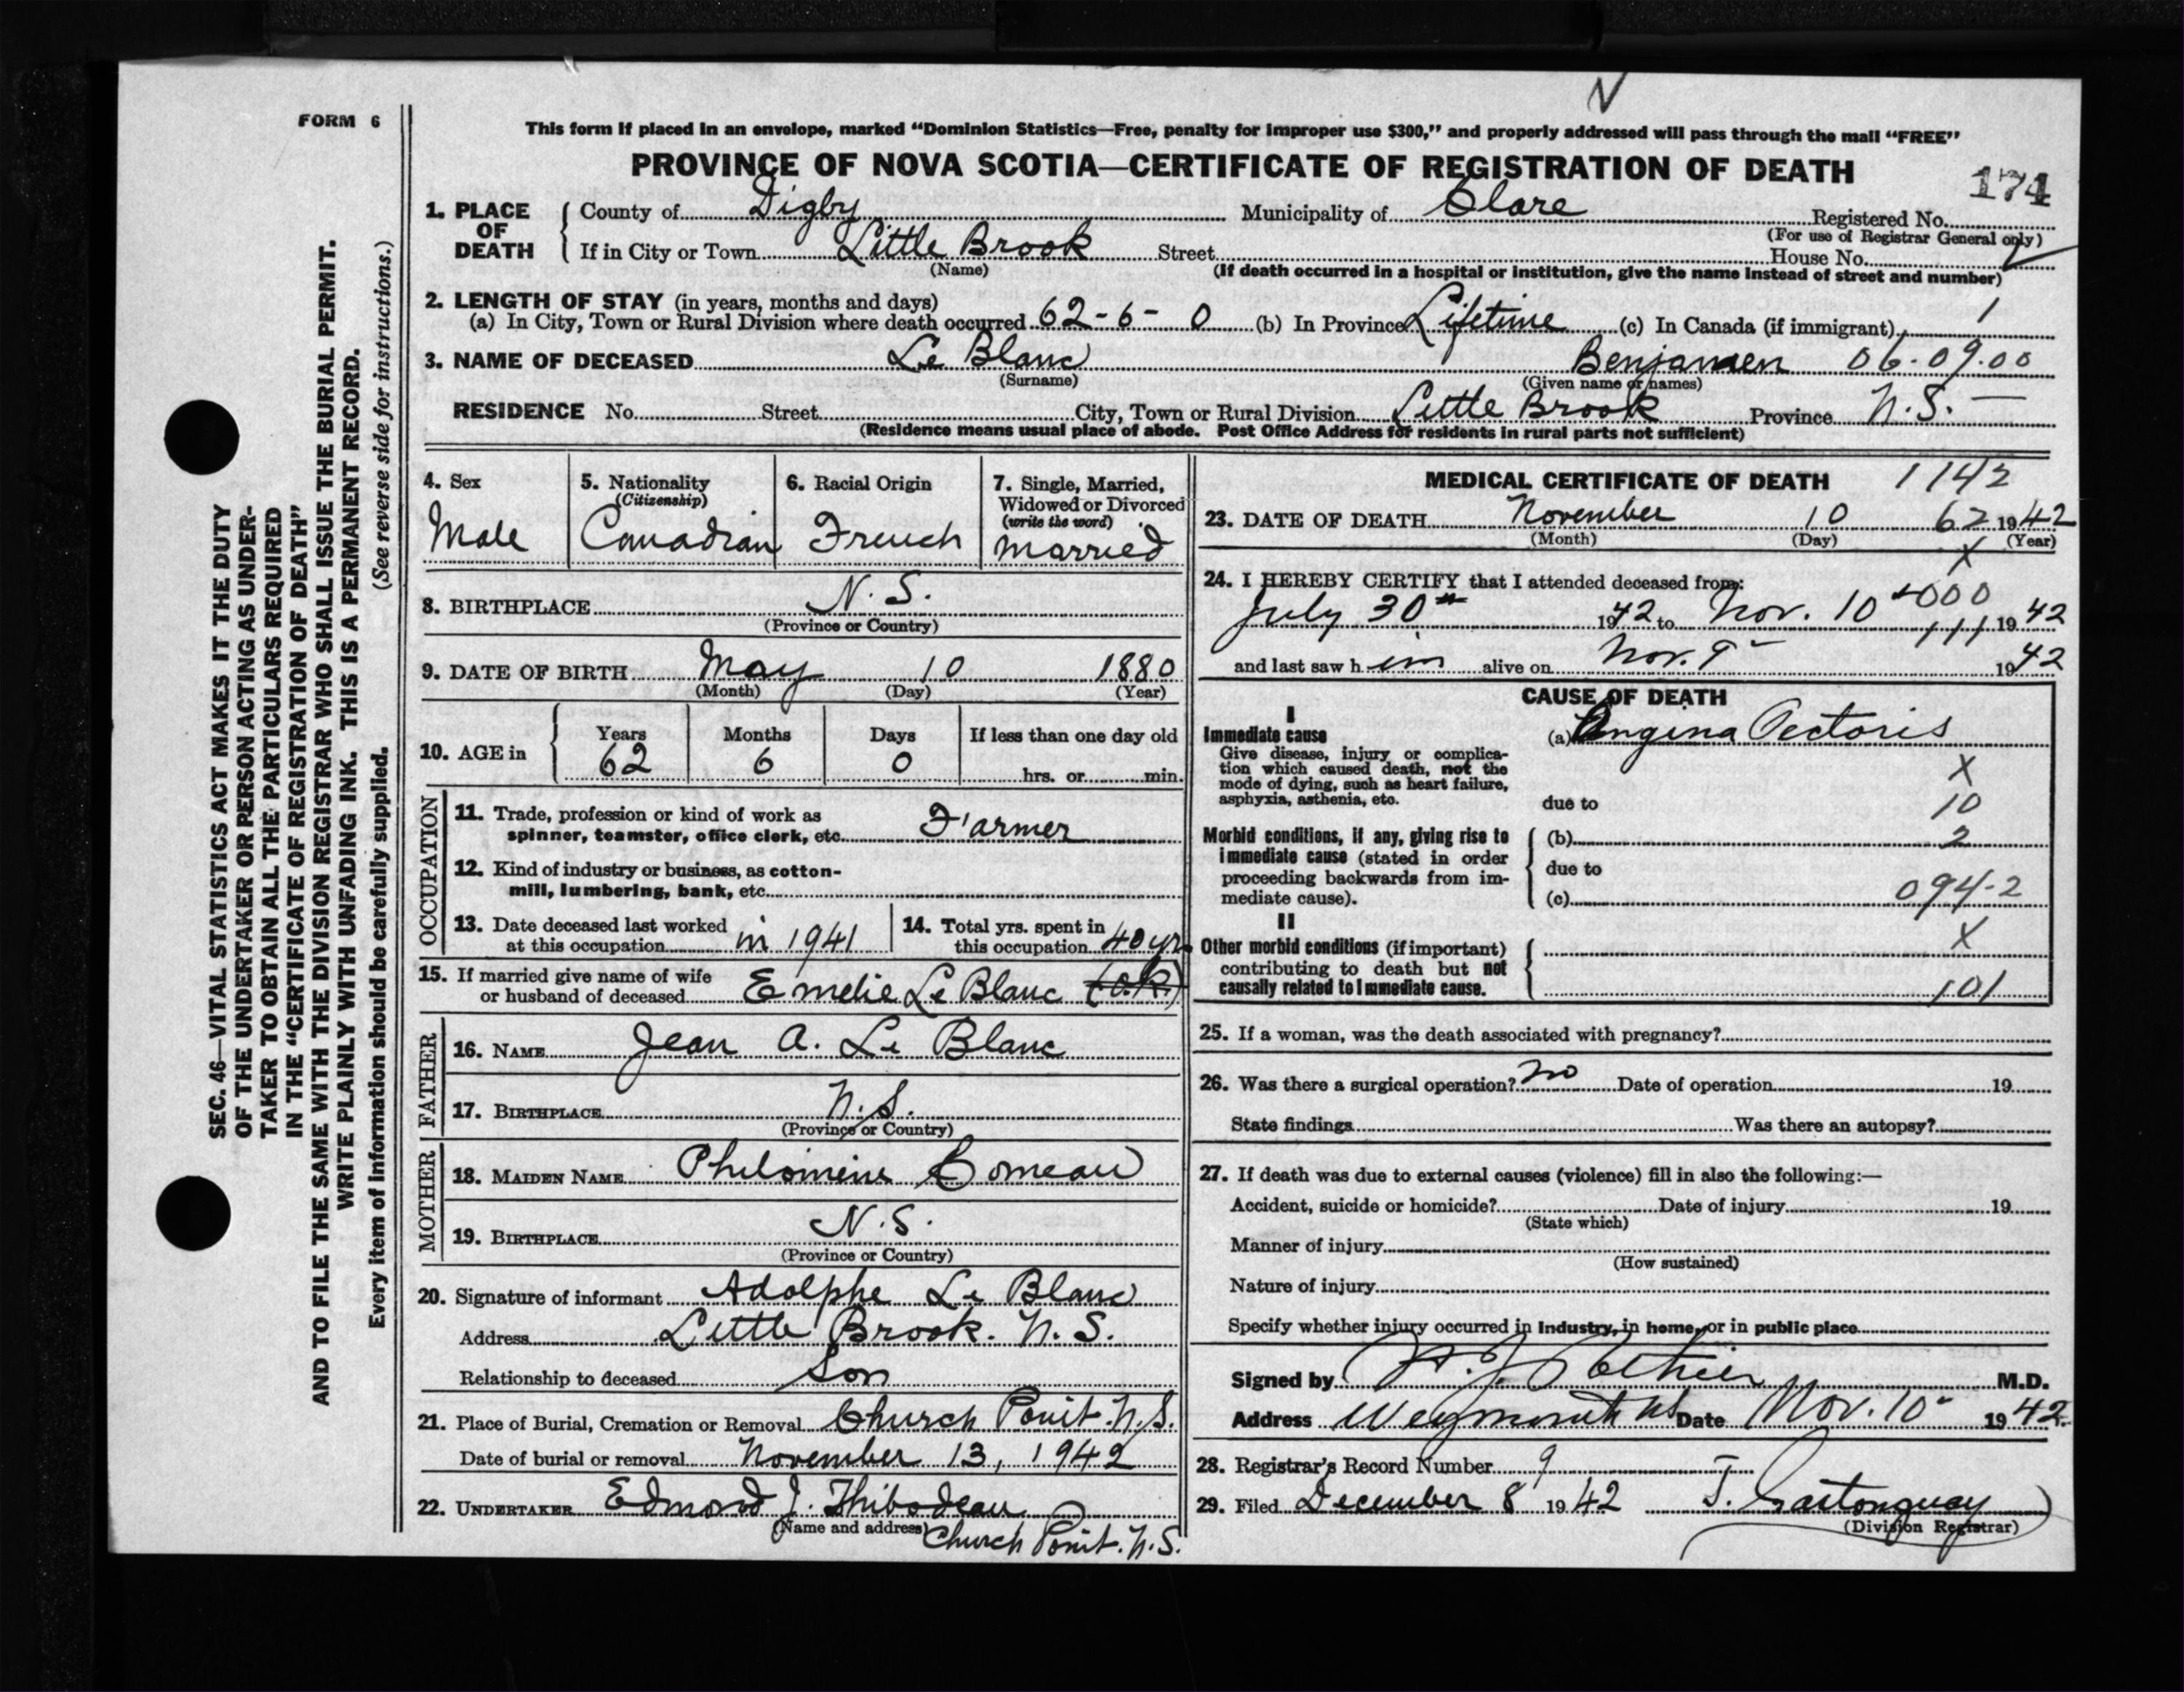 FORM 6
SEC. 46—VITAL STATISTICS ACT MAKES IT THE DUTY
OF THE UNDERTAKER OR PERSON ACTING AS UNDER-
TAKER TO OBTAIN ALL THE PARTICULARS REQUIRED
IN THE "CERTIFICATE OF REGISTRATION OF DEATH"
AND TO FILE THE SAME WITH THE DIVISION REGISTRAR WHO SHALL ISSUE THE BURIAL PERMIT.
WRITE PLAINLY WITH UNFADING INK. THIS IS A PERMANENT RECORD.
Every item of information should be carefully supplied. (See reverse side for instructions.)
This form if placed in an envelope, marked "Dominion Statistics—Free, penalty for improper use $300," and properly addressed will pass through the mail "FREE"
PROVINCE OF NOVA SCOTIA—CERTIFICATE OF REGISTRATION OF DEATH
174
1. PLACE OF DEATH County of Digby Municipality of Clare Registered No.
(For use of Registrar General only)
If in City or Town Little Brook Street House No.
(Name) (If death occurred in a hospital or institution, give the name instead of street and number)
2. LENGTH OF STAY (in years, months and days)
(a) In City, Town or Rural Division where death occurred 62-6-0 (b) In Province Lifetime (c) In Canada (if immigrant) 1
3. NAME OF DECEASED Le Blanc Benjamen 06-09.00
(Surname) (Given name or names)
RESIDENCE No. Street City, Town or Rural Division Little Brook Province N.S. —
(Residence means usual place of abode. Post Office Address for residents in rural parts not sufficient)
4. Sex Male
5. Nationality (Citizenship) Canadian
6. Racial Origin French
7. Single, Married, Widowed or Divorced (write the word) married
8. BIRTHPLACE N.S.
(Province or Country)
9. DATE OF BIRTH May 10 1880
(Month) (Day) (Year)
10. AGE in Years 62 Months 6 Days 0 If less than one day old hrs. or min.
OCCUPATION
11. Trade, profession or kind of work as
spinner, teamster, office clerk, etc. Farmer
12. Kind of industry or business, as cotton-
mill, lumbering, bank, etc.
13. Date deceased last worked
at this occupation in 1941
14. Total yrs. spent in
this occupation 40 yrs
15. If married give name of wife
or husband of deceased Emelie Le Blanc (o.k.)
FATHER
16. NAME Jean A. Le Blanc
17. BIRTHPLACE N.S.
(Province or Country)
MOTHER
18. MAIDEN NAME Philomine Comeau
19. BIRTHPLACE N.S.
(Province or Country)
20. Signature of informant Adolphe Le Blanc
Address Little Brook. N.S.
Relationship to deceased Son
21. Place of Burial, Cremation or Removal Church Point. N.S.
Date of burial or removal November 13, 1942
22. UNDERTAKER Edmond J. Thibodeau
(Name and address) Church Point. N.S.
MEDICAL CERTIFICATE OF DEATH 1142
23. DATE OF DEATH November 10 62 1942
(Month) (Day) (Year)
X
24. I HEREBY CERTIFY that I attended deceased from:
000
July 30th 1942 to Nov. 10 111 1942
and last saw him alive on Nov. 9 1942
CAUSE OF DEATH
I
Immediate cause (a) Angina Pectoris
Give disease, injury or complica-
tion which caused death, not the
mode of dying, such as heart failure,
asphyxia, asthenia, etc.
X
due to 10
Morbid conditions, if any, giving rise to
immediate cause (stated in order
proceeding backwards from im-
mediate cause).
(b) 2
due to
(c) 094-2
II
X
Other morbid conditions (if important)
contributing to death but not
causally related to immediate cause.
101
25. If a woman, was the death associated with pregnancy?
26. Was there a surgical operation? no Date of operation 19
State findings Was there an autopsy?
27. If death was due to external causes (violence) fill in also the following:—
Accident, suicide or homicide? Date of injury 19
(State which)
Manner of injury
(How sustained)
Nature of injury
Specify whether injury occurred in industry, in home, or in public place
Signed by Pothier M.D.
Address Weymouth NS Date Nov. 10 1942
28. Registrar's Record Number 9
29. Filed December 8 1942 J. Gastonguay
(Division Registrar)